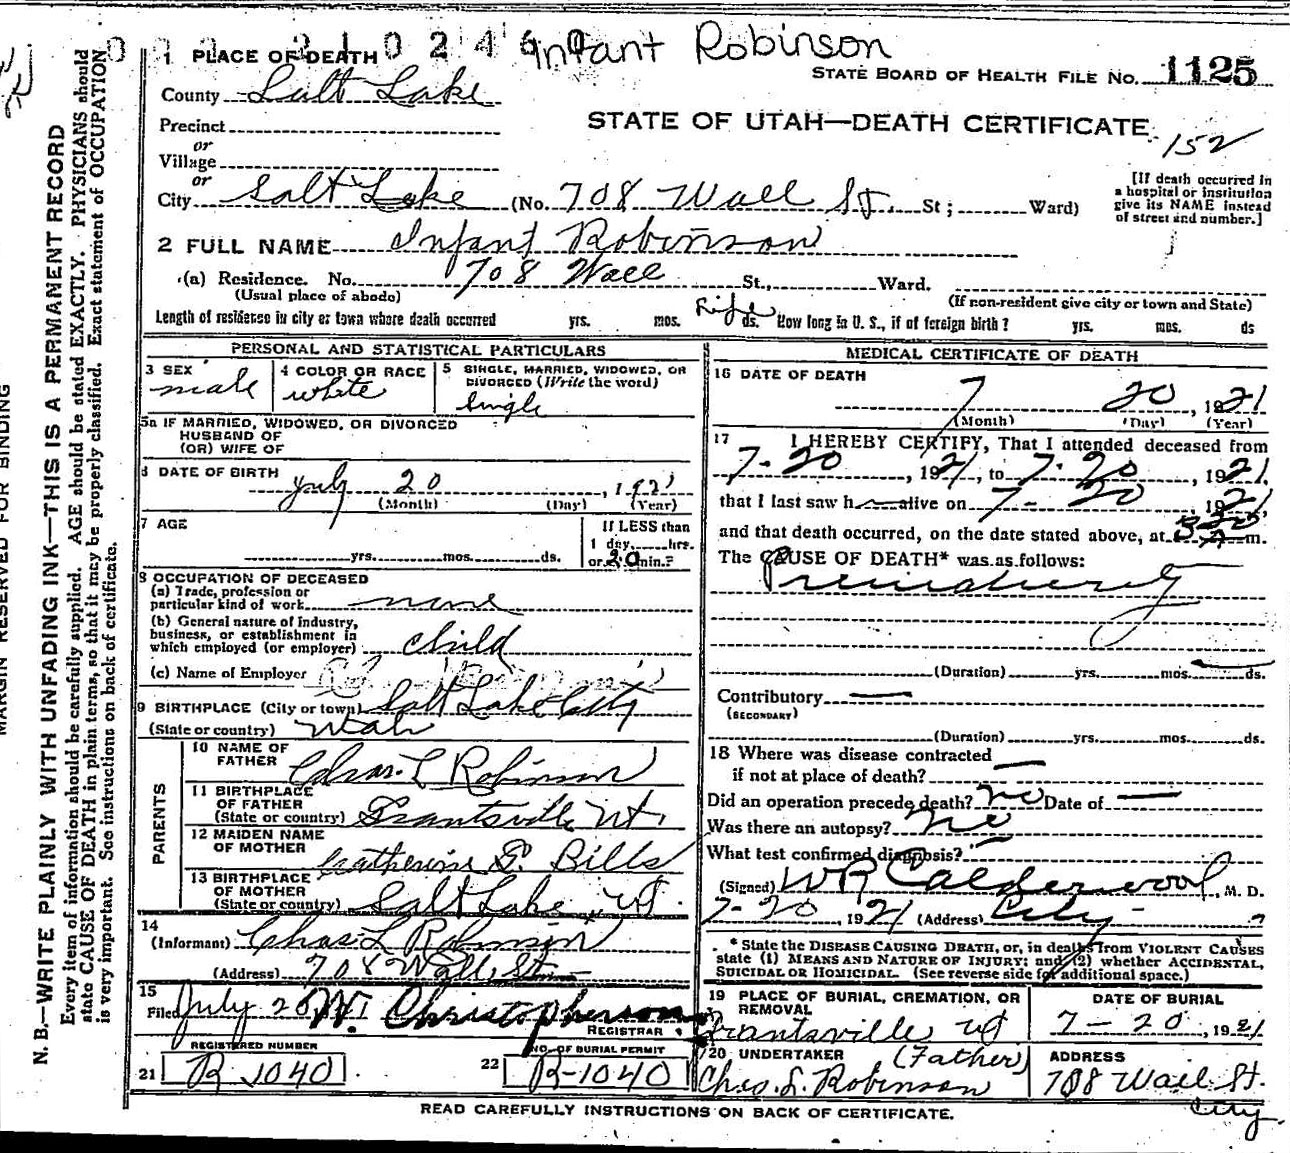 Infant Robinson
1 PLACE OF DEATH
STATE BOARD OF HEALTH FILE NO. 1125
County Salt Lake
STATE OF UTAH—DEATH CERTIFICATE
152
Precinct
or
Village
or
City Salt Lake (No. 708 Wall St. St; Ward)
[If death occurred in
a hospital or institution
give its NAME instead
of street and number.]
2 FULL NAME Infant Robinson
(a) Residence. No. 708 Wall St., Ward.
(Usual place of abode) (If non-resident give city or town and State)
Length of residence in city or town where death occurred yrs. mos. Life ds. How long in U. S., if of foreign birth? yrs. mos. ds
PERSONAL AND STATISTICAL PARTICULARS
3 SEX male
4 COLOR OR RACE white
5 SINGLE, MARRIED, WIDOWED, OR
DIVORCED (Write the word)
Single
5a IF MARRIED, WIDOWED, OR DIVORCED
HUSBAND OF
(OR) WIFE OF
6 DATE OF BIRTH
July 20, 1921
(Month) (Day) (Year)
7 AGE
yrs. mos. ds.
If LESS than
1 day, hrs.
or 20 min.?
8 OCCUPATION OF DECEASED
(a) Trade, profession or
particular kind of work none
(b) General nature of Industry,
business, or establishment in
which employed (or employer) child
(c) Name of Employer
9 BIRTHPLACE (City or town) Salt Lake City
(State or country) Utah
PARENTS
10 NAME OF
FATHER Chas. L Robinson
11 BIRTHPLACE
OF FATHER
(State or country) Grantsville Ut.
12 MAIDEN NAME
OF MOTHER Catherine S. Bills
13 BIRTHPLACE
OF MOTHER
(State or country) Salt Lake, Ut.
14
(Informant) Chas L Robinson
(Address) 708 Wall St
15
Filed July 20 W. Christopherson
REGISTRAR
REGISTERED NUMBER
21 R 1040
NO. OF BURIAL PERMIT
22 R-1040
MEDICAL CERTIFICATE OF DEATH
16 DATE OF DEATH
7 20, 1921
(Month) (Day) (Year)
17 I HEREBY CERTIFY, That I attended deceased from
7-20, 1921, to 7-20, 1921,
that I last saw h alive on 7-20 1921,
and that death occurred, on the date stated above, at m.
The CAUSE OF DEATH* was as follows:
Prematurity
(Duration) yrs. mos. ds.
Contributory —
(SECONDARY)
(Duration) yrs. mos. ds.
18 Where was disease contracted
if not at place of death? —
Did an operation precede death? no Date of —
Was there an autopsy? no
What test confirmed diagnosis? —
(Signed) WR Calderwood, M. D.
7-20, 1921 (Address) City
* State the DISEASE CAUSING DEATH, or, in deaths from VIOLENT CAUSES
state (1) MEANS AND NATURE OF INJURY; and (2) whether ACCIDENTAL,
SUICIDAL OR HOMICIDAL. (See reverse side for additional space.)
19 PLACE OF BURIAL, CREMATION, OR
REMOVAL
Grantsville Ut
DATE OF BURIAL
7-20, 1921
20 UNDERTAKER (Father)
Chas. L. Robinson
ADDRESS
708 Wall St.
City
READ CAREFULLY INSTRUCTIONS ON BACK OF CERTIFICATE.
MARGIN RESERVED FOR BINDING
N. B.—WRITE PLAINLY WITH UNFADING INK—THIS IS A PERMANENT RECORD
Every item of information should be carefully supplied. AGE should be stated EXACTLY. PHYSICIANS should
state CAUSE OF DEATH in plain terms, so that it may be properly classified. Exact statement of OCCUPATION
is very important. See instructions on back of certificate.